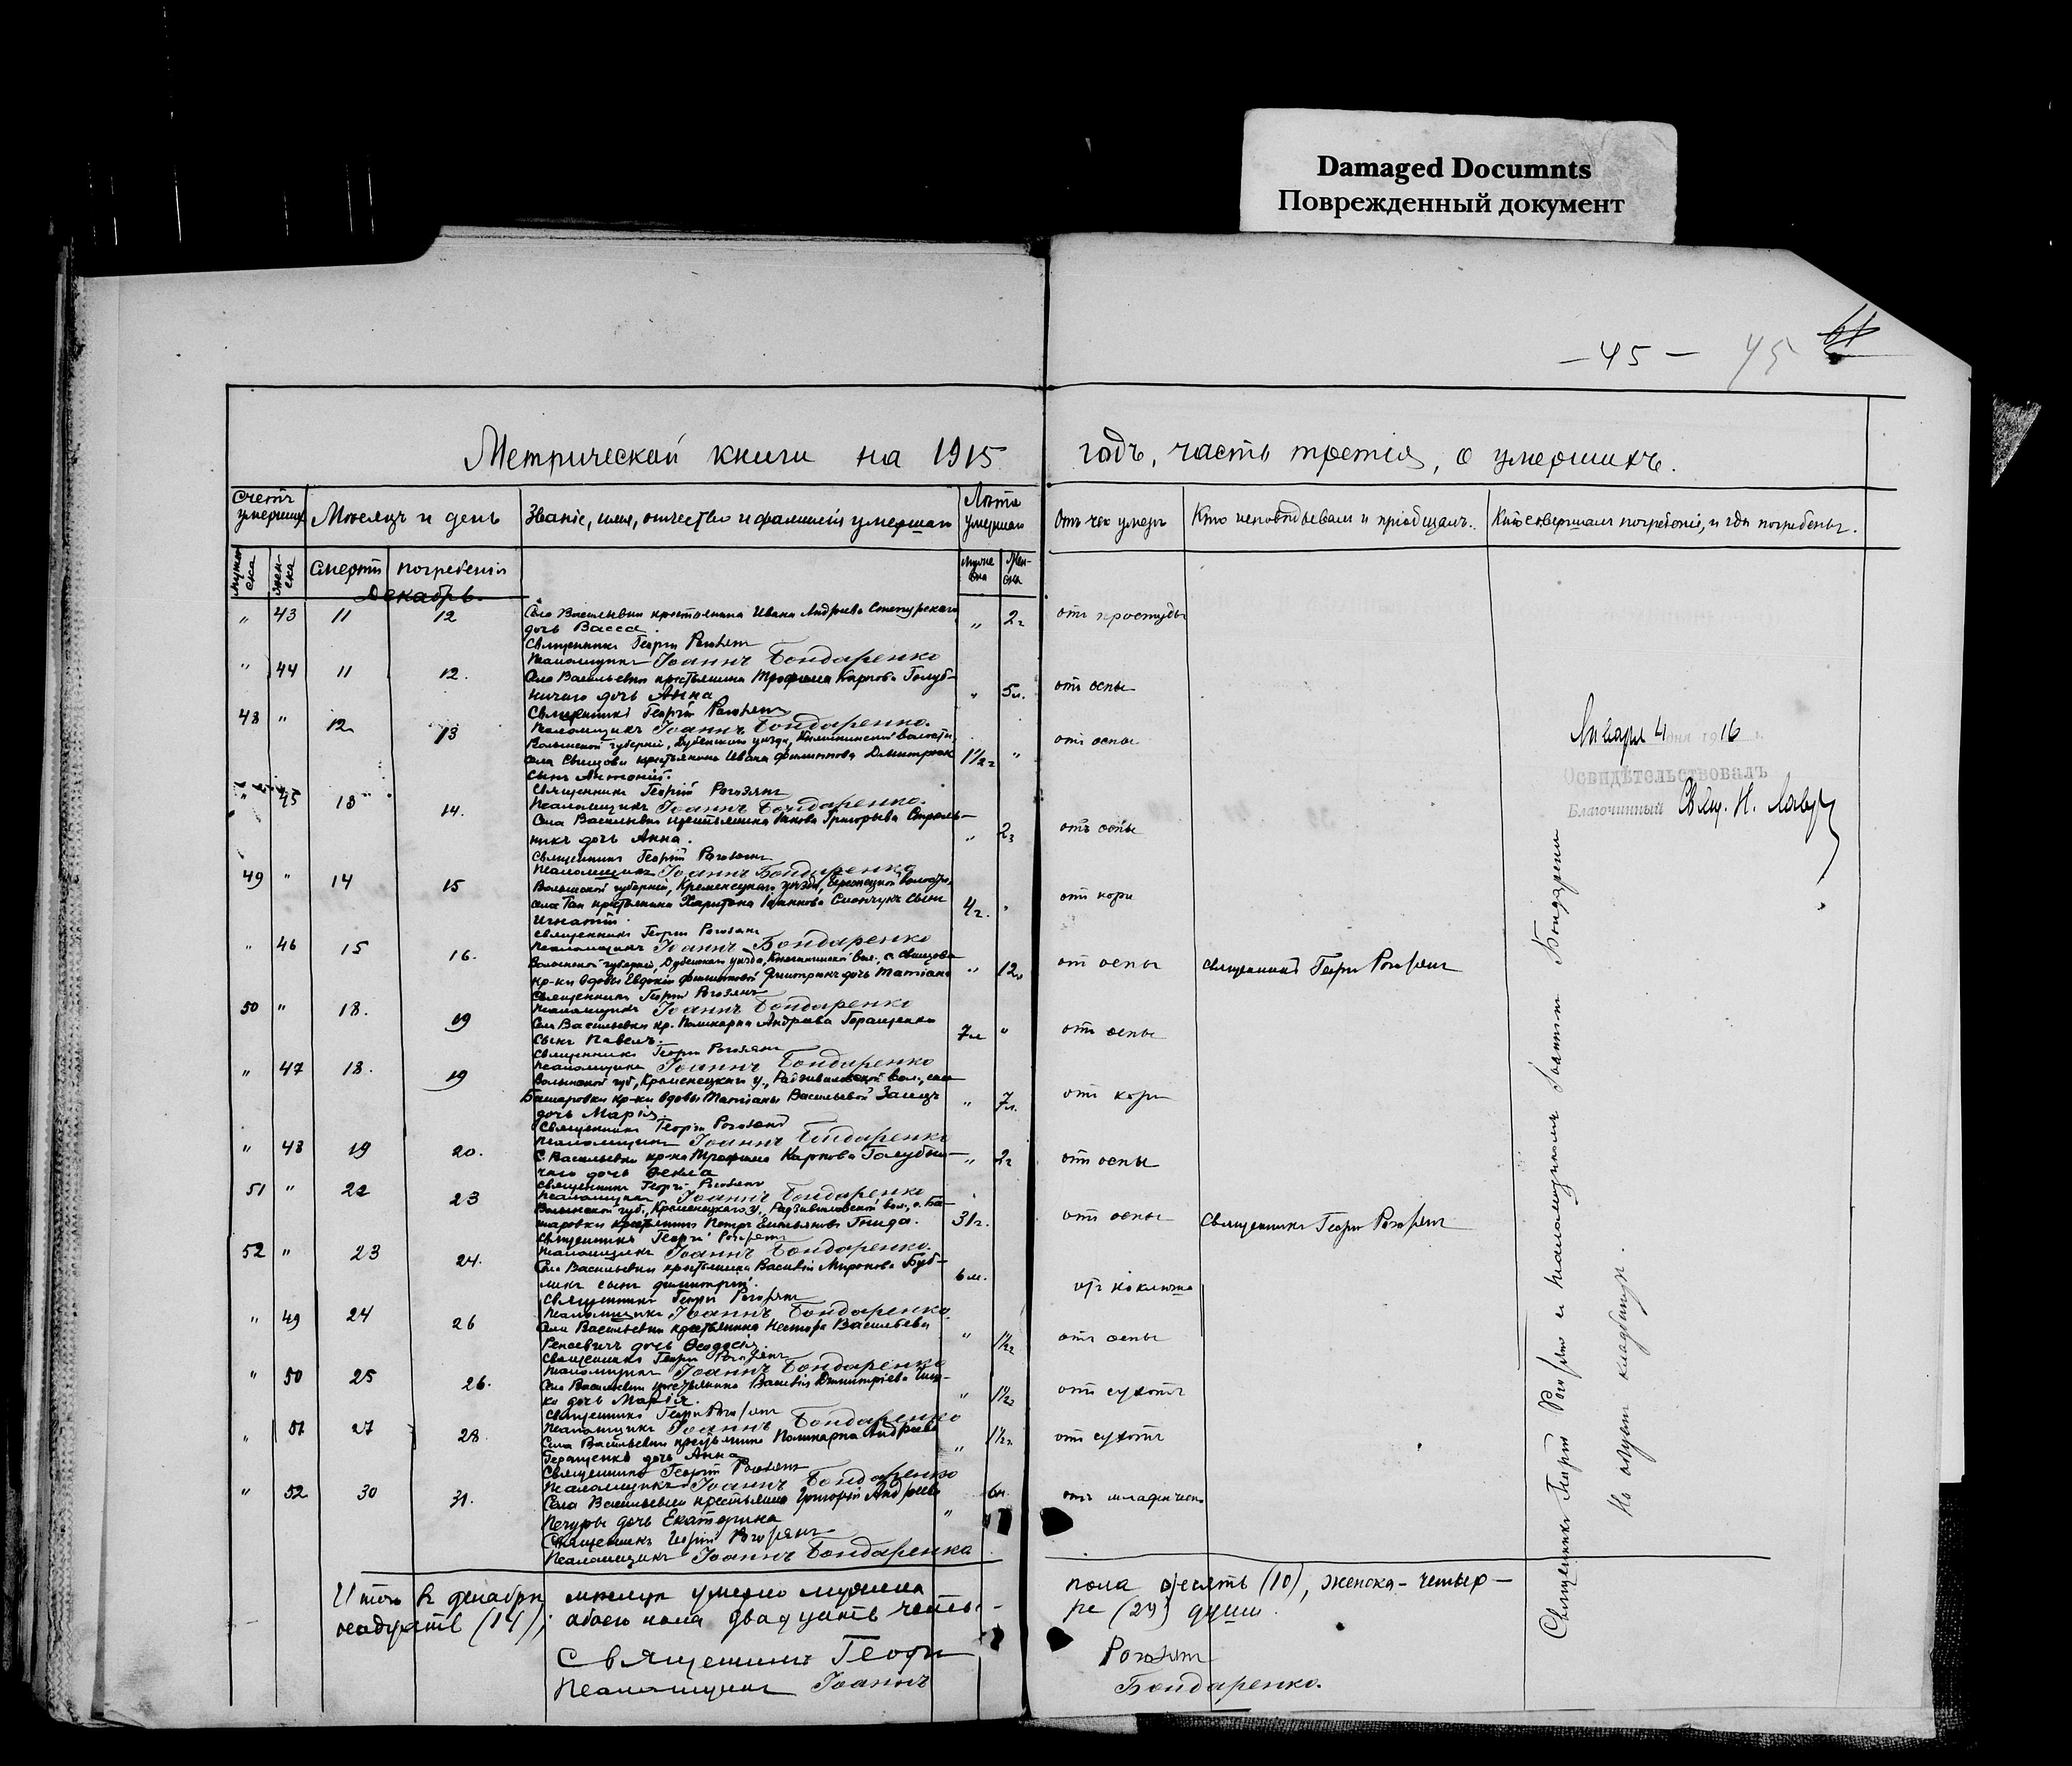 Damaged Documnts
Поврежденный документ
— 45 — 45
Метрической книги на 1915 годъ, часть третія, о умершихъ.
Счетъ умершихъ
Мѣсяцъ и день
Званіе, имя, отчество и фамилія умершаго
Лѣта умершаго
Отъ чего умеръ
Кто исповѣдывалъ и пріобщалъ.
Кто совершалъ погребеніе, и гдѣ погребены.
мужеска
женска
Смерти
погребенія
мужеска
Женска
Декабрь.
" 43 11 12 Села Васильевки крестьянина Ивана Андреева
дочь Васса. " 2г отъ простуды
Священникъ Георгій
Псаломщикъ Іоаннъ Бондаренко
" 44 11 12. Села Васильевки крестьянина Трофима Карпова Голуб-
ничаго дочь Анна " 5л. отъ оспы
Священникъ Георгій
Псаломщикъ Іоаннъ Бондаренко.
48 " 12 13 Волынской губерніи, Дубенскаго уѣзда, Княгининской волости,
села крестьянина Ивана Филиппова Дмитрюк
сынъ Антоній. 1½г " отъ оспы
Священникъ Георгій
Псаломщикъ Іоаннъ Бондаренко.
" 45 13 14. Села Васильевки крестьянина Якова Григорьева
никъ дочь Анна. " 2г отъ оспы
Священникъ Георгій
Псаломщикъ Іоаннъ Бондаренко
49 " 14 15 Волынской губерніи, Кременецкаго уѣзда, волости,
села крестьянина Харитона сынъ
Игнатій. 4г. " отъ кори
Священникъ Георгій
Псаломщикъ Іоаннъ Бондаренко
" 46 15 16. Волынской губерніи, Дубенскаго уѣзда, Княгининской вол., с.
кр-ки вдовы Евдокіи Филипповой Дмитрюкъ дочь Татіана " 12л отъ оспы Священникъ Георгій
Священникъ Георгій
Псаломщикъ Іоаннъ Бондаренко
50 " 18. 19 Села Васильевки кр. Поликарпа Андреева Геращенко
сынъ Павелъ. 7м " отъ оспы
Священникъ Георгій
Псаломщикъ Іоаннъ Бондаренко
" 47 18. 19 Волынской губ., Кременецкаго у., Радзивиловской вол., села
Башаровки кр-ки вдовы Татіаны Васильевой Заяцъ
дочь Марія. " 7л. отъ кори
Священникъ Георгій
Псаломщикъ Іоаннъ Бондаренко
" 48 19 20. С. Васильевки кр-на Трофима Карпова Голубни-
чаго дочь Ѳекла " 2г отъ оспы
Священникъ Георгій
Псаломщикъ Іоаннъ Бондаренко
51 " 22 23 Волынской губ., Кременецкаго у., Радзивиловской вол., с. Ба-
шаровки крестьянинъ Петръ Гнида. 31г. отъ оспы Священникъ Георгій
Священникъ Георгій
Псаломщикъ Іоаннъ Бондаренко.
52 " 23 24. Села Васильевки крестьянина Василія Миронова Буб-
ликъ сынъ Димитрій. 6м. отъ коклюша
Священникъ Георгій
Псаломщикъ Іоаннъ Бондаренко
" 49 24 26 Села Васильевки крестьянина Нестора Васильева
дочь Ѳеодосія " 1½г отъ оспы
Священникъ Георгій
Псаломщикъ Іоаннъ Бондаренко
" 50 25 26. Села Васильевки крестьянина Василія Димитріева
ко дочь Марія. " 1½г отъ сухотъ
Священникъ Георгій
Псаломщикъ Іоаннъ Бондаренко
" 51 27 28. Села Васильевки крестьянина Поликарпа Андреева
Геращенко дочь Анна " 1½г. отъ сухотъ
Священникъ Георгій
Псаломщикъ Іоаннъ Бондаренко
" 52 30 31. Села Васильевки крестьянина Григорія Андреева
Печуры дочь Екатерина " 6м отъ
Священникъ Георгій
Псаломщикъ Іоаннъ Бондаренко
Января 4 дня 1916 г.
Освидѣтельствовалъ
Благочинный Свящ. Н.
Священникъ Георгій и псаломщикъ Іоаннъ Бондаренко
На общемъ кладбищѣ.
Итого въ декабрѣ мѣсяцѣ умерло мужеска пола десять (10), женска - четыр-
надцать (14), обоего пола двадцать четы- ре (24) души.
Священникъ Георгій
Псаломщикъ Іоаннъ Бондаренко.